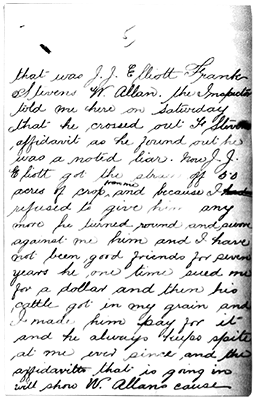 5
that was J. J. Elliott Frank
Stevens W. Allan. the Inspector
told me here on Saturday
that he crossed out F Stevens
affidavit as he found out he
was a noted liar. Now J. J.
Elliott got the straw of 60
acres of crop from me and because I had
refused to give him any
more he turned round and swore
against me him and I have
not been good friends for seven
years he one time sued me
for a dollar and then his
cattle got in my grain and
I made him pay for it
and he always keeps spite
at me ever since and the
affidavits that is going in
will show W. Allans cause